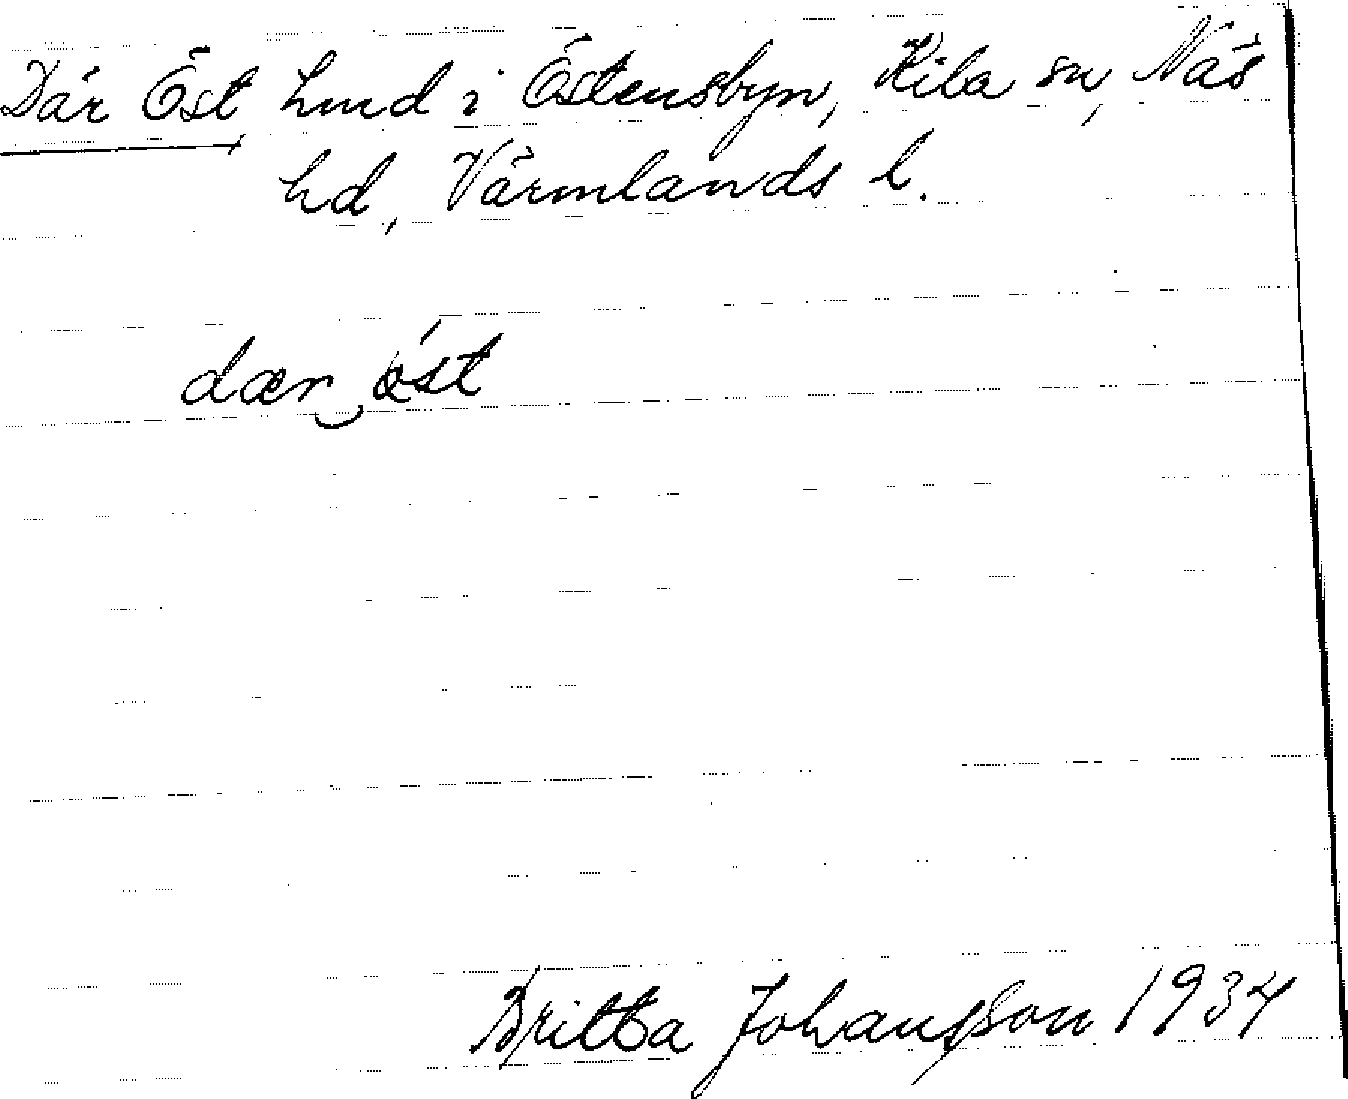 Där Öst, hmd i Östensbyn, Kila sn, Näs
hd, Värmlands l.
dær öst
Britta Johansson 1934